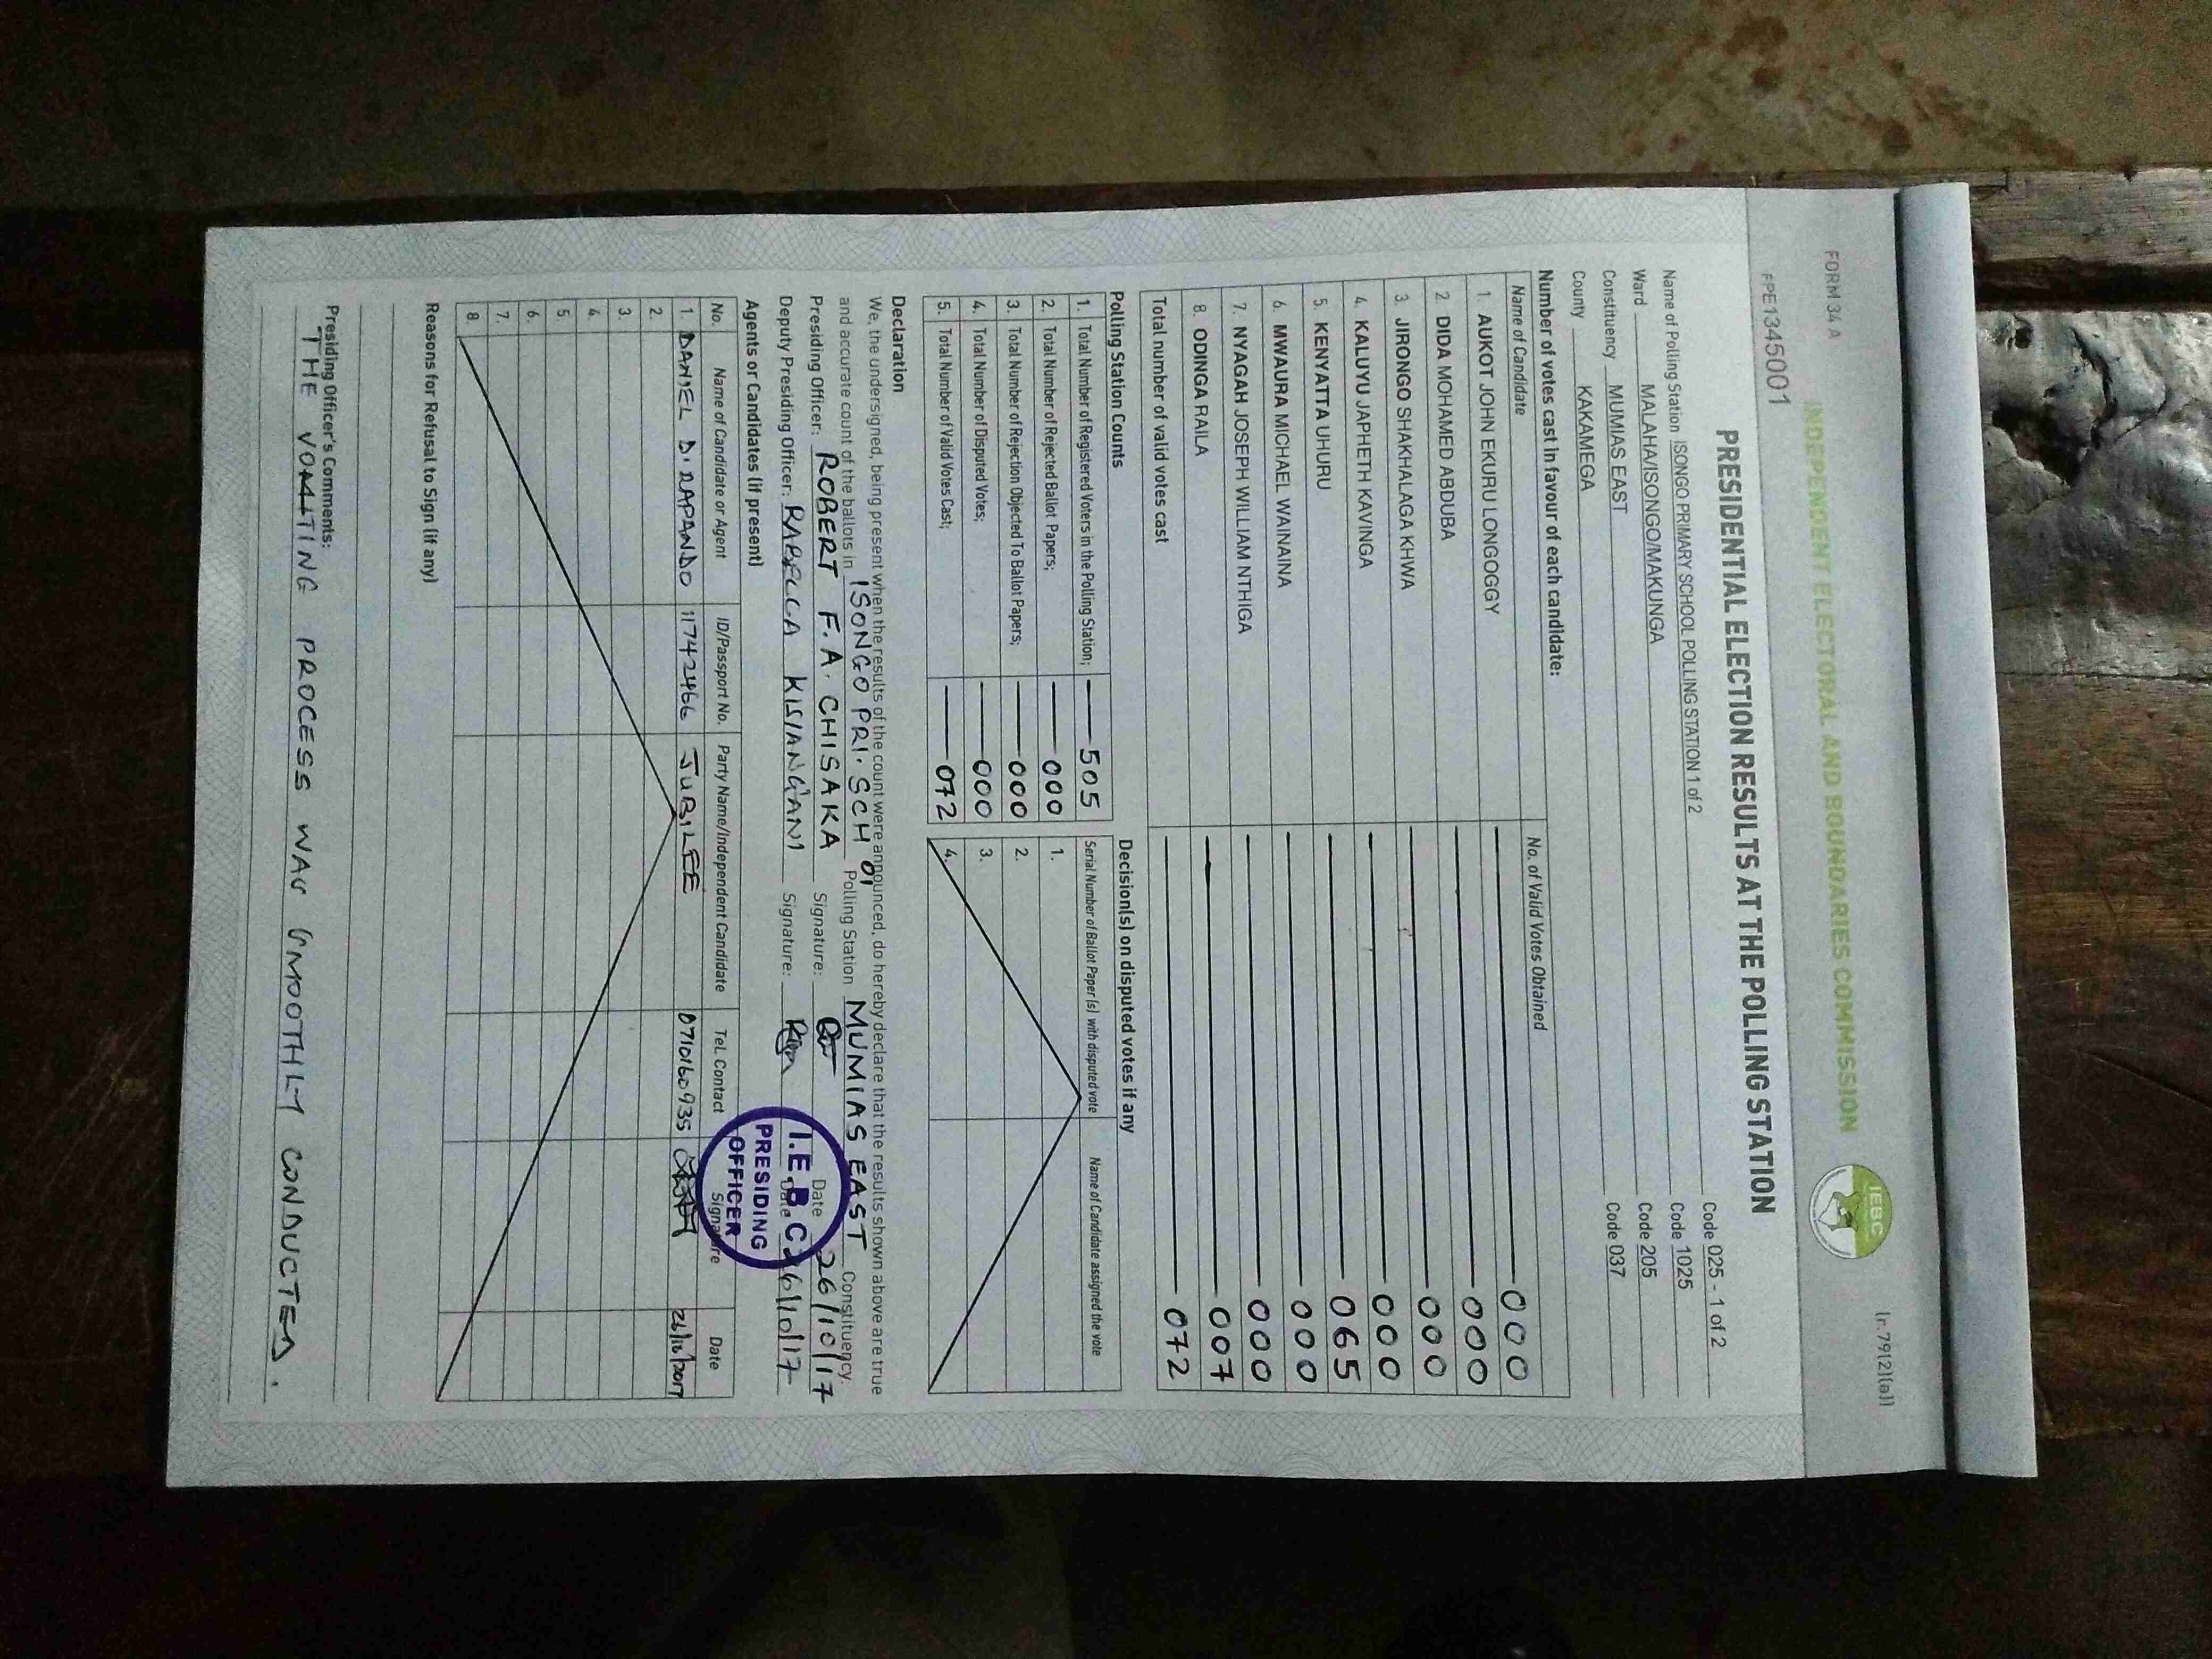 FORM 34 A
(r.79(2)(a))
INDEPENDENT ELECTORAL AND BOUNDARIES COMMISSION
IEBC
FPE1345001
PRESIDENTIAL ELECTION RESULTS AT THE POLLING STATION
Name of Polling Station ISONGO PRIMARY SCHOOL POLLING STATION 1 of 2 Code 025 - 1 of 2
Ward MALAHA/ISONGO/MAKUNGA Code 1025
Constituency MUMIAS EAST Code 205
County KAKAMEGA Code 037
Number of votes cast in favour of each candidate:
Name of Candidate No. of Valid Votes Obtained
1. AUKOT JOHN EKURU LONGOGGY 000
2. DIDA MOHAMED ABDUBA 000
3. JIRONGO SHAKHALAGA KHWA 000
4. KALUYU JAPHETH KAVINGA 000
5. KENYATTA UHURU 065
6. MWAURA MICHAEL WAINAINA 000
7. NYAGAH JOSEPH WILLIAM NTHIGA 000
8. ODINGA RAILA 007
Total number of valid votes cast 072
Polling Station Counts
1. Total Number of Registered Voters in the Polling Station; 505
2. Total Number of Rejected Ballot Papers; 000
3. Total Number of Rejection Objected To Ballot Papers; 000
4. Total Number of Disputed Votes; 000
5. Total Number of Valid Votes Cast; 072
Decision(s) on disputed votes if any
Serial Number of Ballot Paper (s) with disputed vote Name of Candidate assigned the vote
1.
2.
3.
4.
Declaration
We, the undersigned, being present when the results of the count were announced, do hereby declare that the results shown above are true
and accurate count of the ballots in ISONGO PRI. SCH 01 Polling Station MUMIAS EAST Constituency.
Presiding Officer: ROBERT F. A. CHISAKA Signature: Date 26/10/17
Deputy Presiding Officer: RABECCA KISIANG'ANI Signature: Date 26/10/17
I.E.B.C
PRESIDING
OFFICER
Agents or Candidates (if present)
No. Name of Candidate or Agent ID/Passport No. Party Name/Independent Candidate Tel. Contact Signature Date
1. DANIEL 11742466 JUBILEE 0710160935 26/10/2017
2.
3.
4.
5.
6.
7.
8.
Reasons for Refusal to Sign (if any)
Presiding Officer's Comments:
THE VOTING PROCESS WAS SMOOTHLY CONDUCTED.